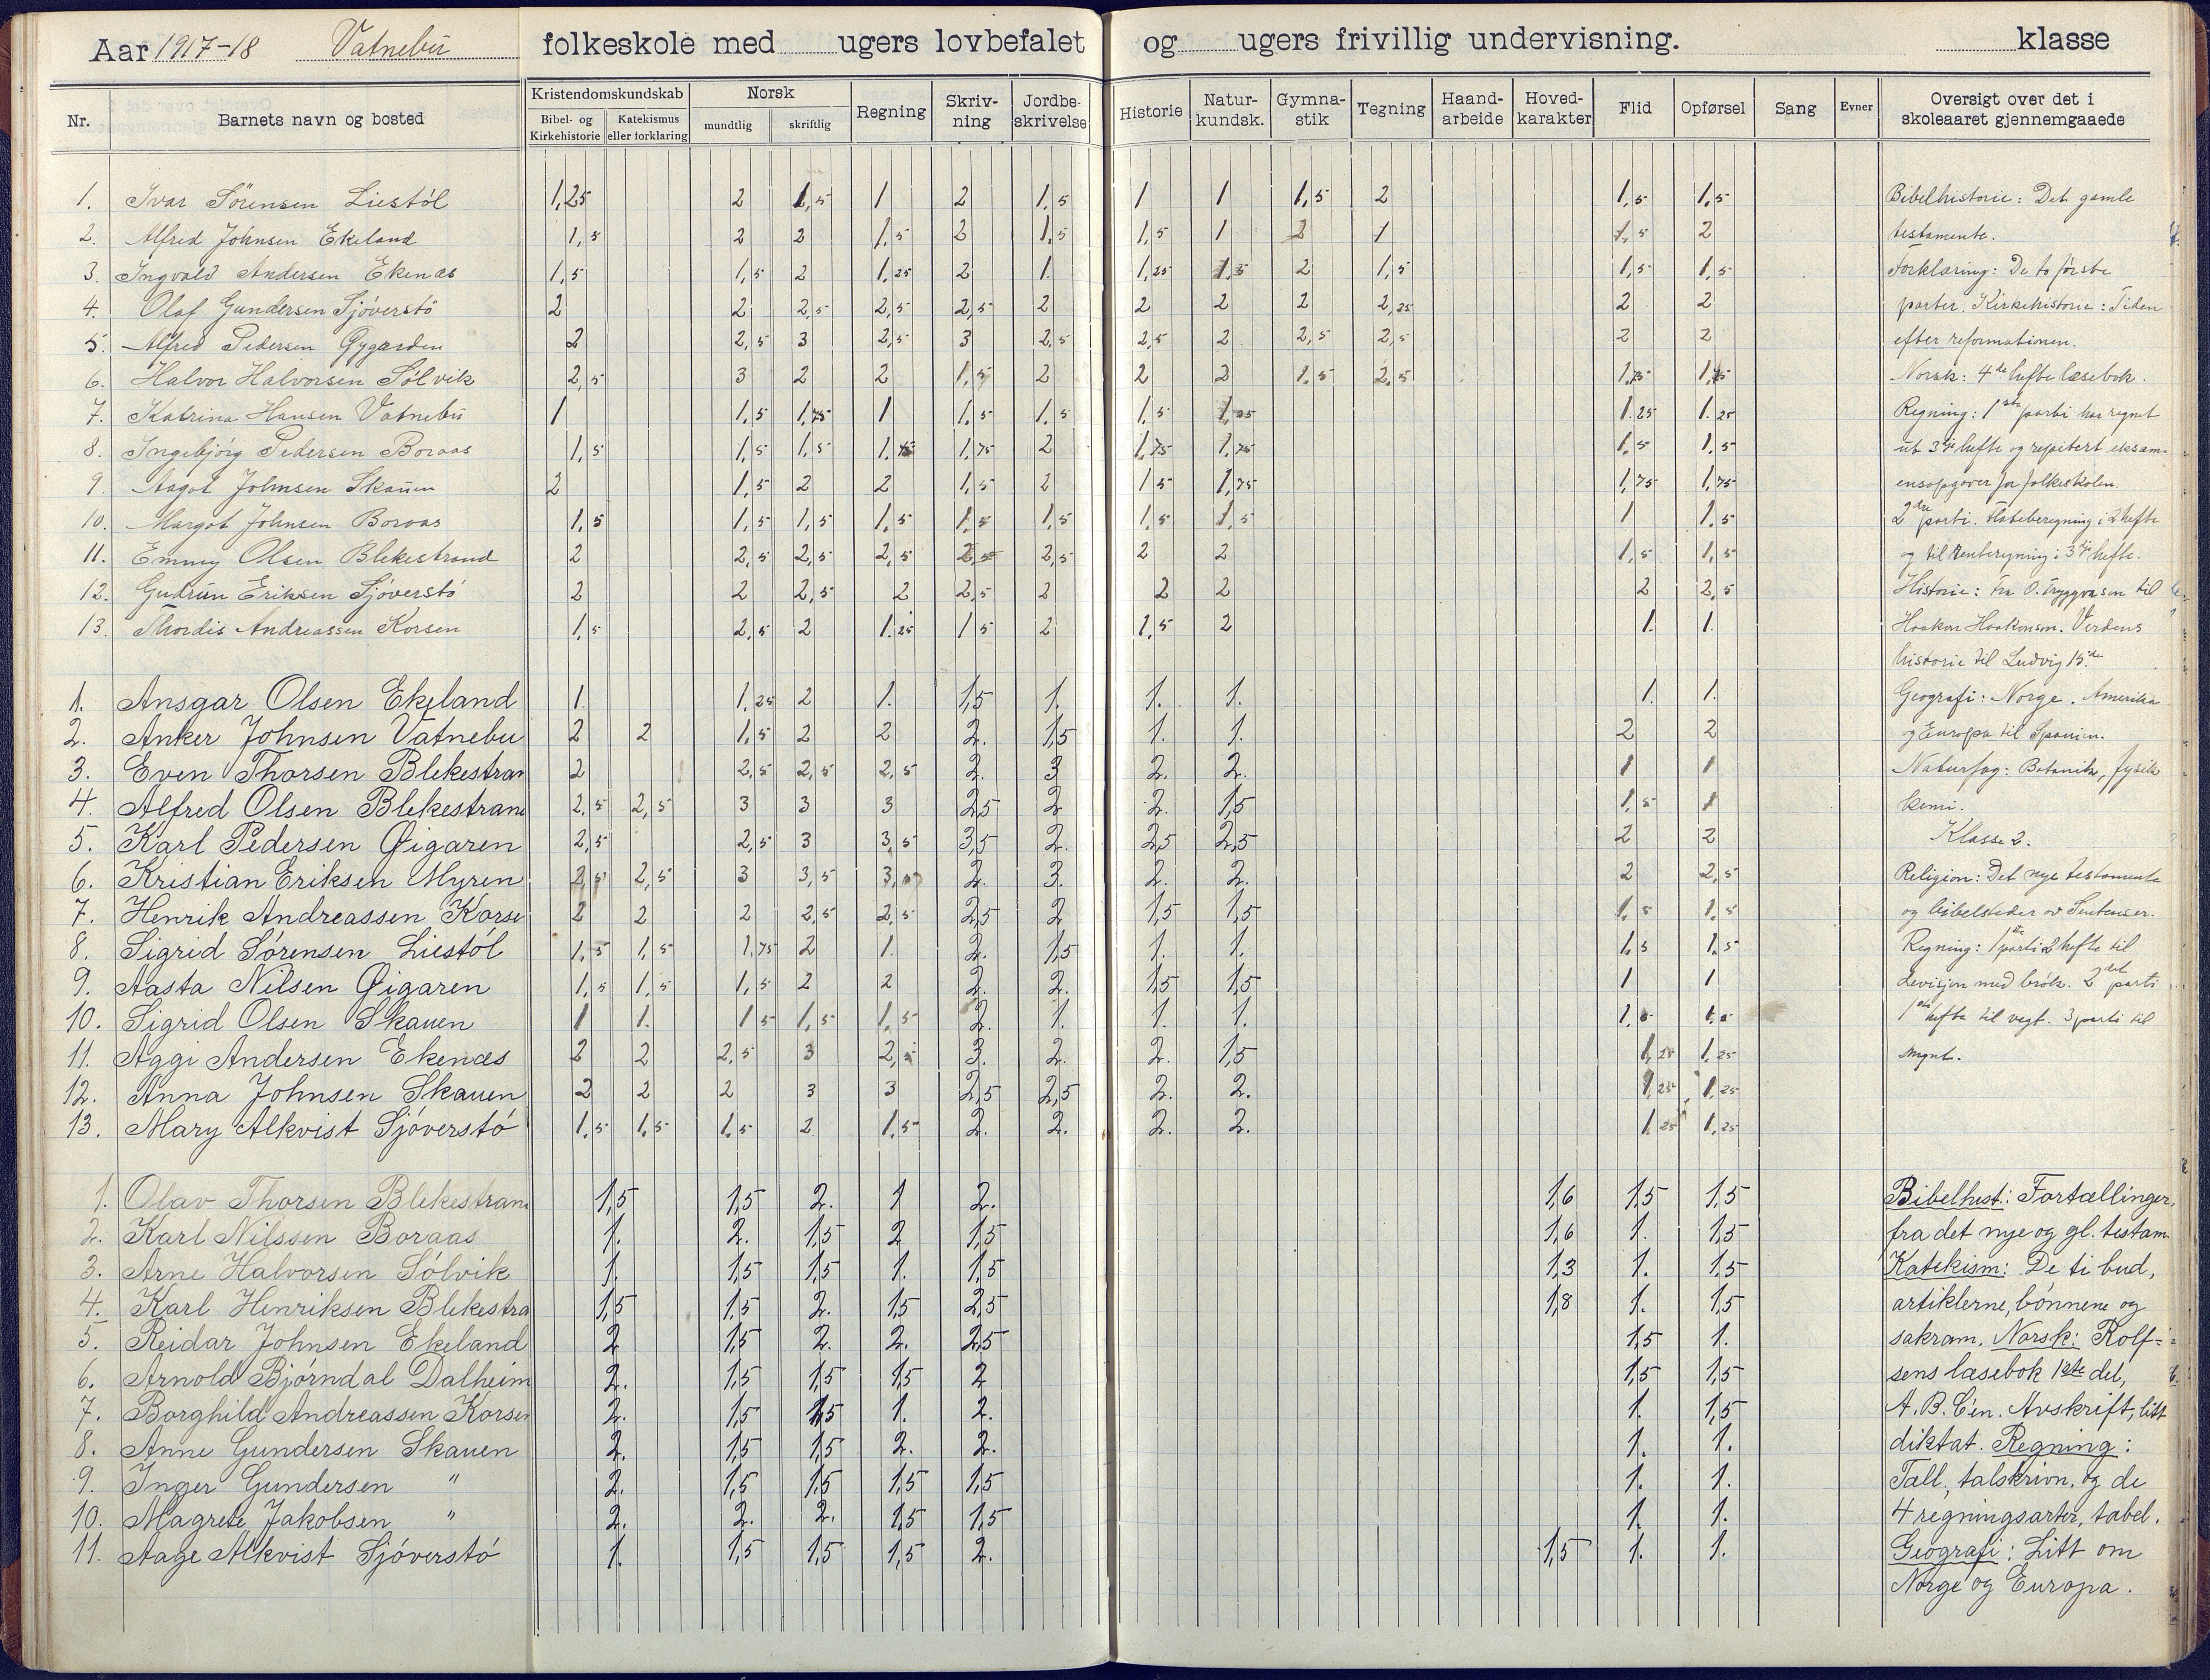 Aar 1917-18 Vatnebu folkeskole med ugers lovbefalet og ugers frivillig undervisning. klasse
Nr. Barnets navn og bosted Kristendomskundskab Bibel- og Kirkehistorie Katekismus eller forklaring Norsk mundtlig skriftlig Regning Skriv-ning Jordbe-skrivelse Historie Natur-kundsk. Gymna-stik Tegning Haand-arbeide Hoved-karakter Flid Opførsel Sang Evner Oversigt over det i skoleaaret gjennemgaaede
1. Ivar Sörensen Liestöl 1,25 2 1,5 1 2 1,5 1 1 1,5 2 1,5 1,5 Bibelhistorie: Det gamle
2. Alfred Johnsen Ekeland 1,5 2 2 1,5 2 1,5 1,5 1 2 1 1,5 2 testamente.
3. Ingvald Andersen Ekenæs 1,5 1,5 2 1,25 2 1. 1,25 1,5 2 1,5 1,5 1,5 Forklaring: De to første
4. Olaf Gundersen Sjöverstö 2 2 2,5 2,5 2,5 2 2 2 2 2,25 2 2 parter. Kirkehistorie: Tiden
5. Alfred Pedersen Øygarden 2 2,5 3 2,5 3 2,5 2,5 2 2,5 2,5 2 2 efter reformationen.
6. Halvor Halvorsen Sölvik 2,5 3 2 2 1,5 2 2 2 1,5 2,5 1,75 1,75 Norsk: 4de hefte læsebok.
7. Katrina Hansen Vatnebu 1 1,5 1,75 1 1,5 1,5 1,5 1,25 1.25 1.25 Regning: 1ste parti har regnet
8. Ingebjörg Pedersen Boraas 1,5 1,5 1,5 1.75 1,75 2 1,75 1,75 1.5 1.5 ut 3dje hefte og repetert eksam-
9. Aagot Johnsen Skauen 2 1,5 2 2 1,5 2 1 5 1,75 1,75 1,75 ensopgaver for folkeskolen.
10. Margot Johnsen Boraas 1,5 1,5 1,5 1,5 1,5 1,5 1,5 1,5 1 1.5 2dre parti. Flateberegning i 2 hefte
11. Emmy Olsen Blekestrand 2 2,5 2,5 2,5 2,5 2,5 2 2 1,5 1,5 og til renteregning i 3dje hefte.
12. Gudrun Eriksen Sjöverstö 2 2 2,5 2 2,5 2 2 2 2 2,5 Historie: Fra O. Tryggvasøn til
13. Thordis Andreassen Korsen 1,5 2,5 2 1.25 1 5 2 1,5 2 1. 1. Haakon Haakonsøn. Verdens
historie til Ludvig 15.de
1. Ansgar Olsen Ekeland 1. 1,25 2 1. 1,5 1. 1. 1. 1. 1. Geografi: Norge. Amerika
2. Anker Johnsen Vatnebu 2 2 1,5 2 2 2. 1,5 1. 1. 2 2 og Europa til Spanien.
3. Even Thorsen Blekestran 2 2,5 2,5 2,5 2. 3 2. 2. 1 1 Naturfag: Botanik, fysik
4. Alfred Olsen Blekestran 2,5 2,5 3 3 3 2,5 2 2. 1,5 1,5 1 kemi.
5. Karl Pedersen Øigaren 2,5 2,5 3 3,5 3,5 2. 2,5 2,5 2 2 Klasse 2.
6. Kristian Eriksen Myren 2,5 2,5 3 3,5 3,5 2. 3. 2. 2. 2 2,5 Religion: Det nye testamente
7. Henrik Andreassen Korse 2 2 2 2,5 2,5 2,5 2 1,5 1,5 1,5 1,5 og bibelsteder
8. Sigrid Sörensen Liestöl 1,5 1,5 1,75 2 1. 2. 1,5 1. 1. 1,5 1,5 Regning: 1ste parti 2 hefte til
9. Aasta Nilsen Øigaren 1,5 1,5 1,5 2 2 2. 2. 1,5 1,5 1 1 devisjon med brök. 2det parti
10. Sigrid Olsen Skauen 1 1. 1 5 1,5 1,5 2. 1. 1. 1. 1.5 1.5 1ste hefte til vegt. 3 parti til
11. Aggi Andersen Ekenæs 2 2 2,5 3 2,5 3. 2. 2. 1,5 1,25 1,25 mynt.
12. Anna Johnsen Skauen 2 2 2 3 3 2,5 2,5 2. 2. 1,25 1,25
13. Mary Alkvist Sjöverstö 1,5 1,5 1,5 2 1,5 2. 2. 2. 2. 1,25 1,25
1. Olav Thorsen Blekestran 1,5 1,5 2. 1 2. 1,6 1,5 1,5 Bibelhist: Fortællinger
2. Karl Nilssen Boraas 1. 2. 1,5 2 1,5 1,6 1. 1,5 fra det nye og gl. testam.
3. Arne Halvorsen Sölvik 1. 1,5 1,5 1. 1,5 1,3 1. 1,5 Katekism: De ti bud,
4. Karl Henriksen Blekestra 1,5 1,5 2. 1,5 2,5 1,8 1. 1,5 artiklerne, bönnene og
5. Reidar Johnsen Ekeland 2 1,5 2. 2. 2,5 1,5 1. sakram. Norsk: Rolf-
6. Arnold Bjørndal Dalheim 2. 1,5 1,5 1,5 2 1,5 1,5 sens læsebok 1ste del,
7. Borghild Andreassen Korsen 2. 1,5 1,5 1. 2. 1. 1,5 A.B.C'en. Avskrift, litt
8. Anne Gundersen Skauen 2. 1,5 1,5 2. 2. 1. 1. diktat. Regning:
9. Inger Gundersen " 2. 1,5 1,5 1,5 1,5 1. 1. Tall, talskrivn. og de
10. Magrete Jakobsen " 2. 2. 2. 1,5 1,5 1. 1. 4 regningsarter, tabel.
11. Aage Alkvist Sjöverstö 1. 1,5 1,5 1,5 2. 1,5 1. 1. Geografi: Litt om
Norge og Europa.